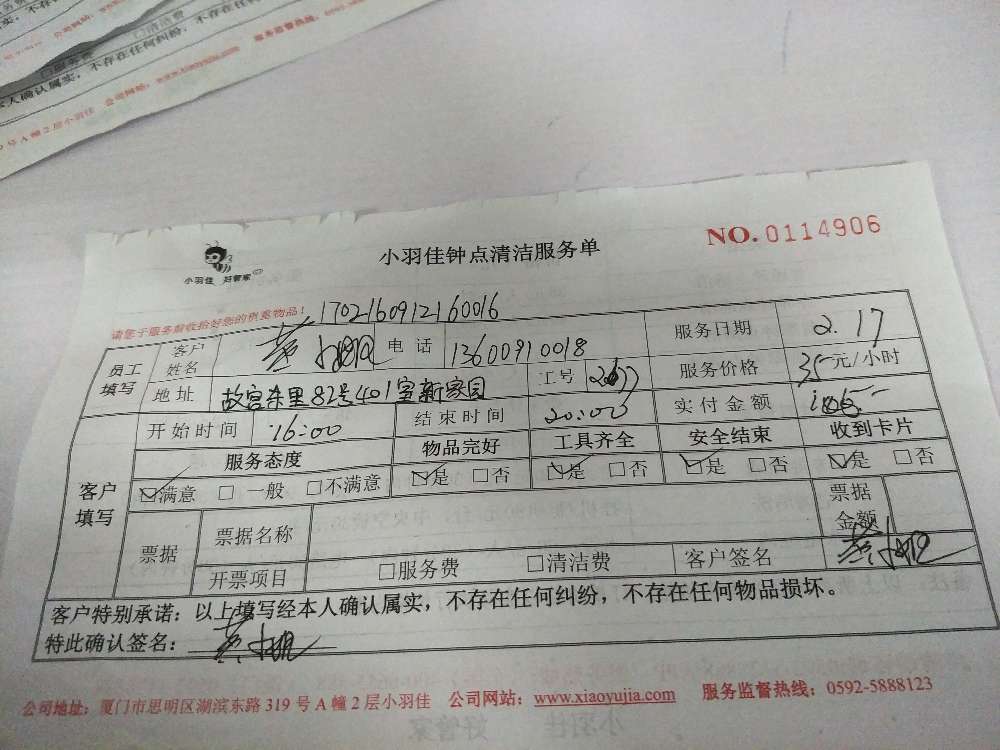 小羽佳 好管家
小羽佳钟点清洁服务单
NO.0114906
请您于服务前收拾好您的贵重物品！
1702160912160016
员工填写 客户姓名 电话 13600910018 服务日期 2.17
地址 故宫东里82号401室新家园 工号 服务价格 35元/小时
开始时间 16:00 结束时间 20:00 实付金额
客户填写 服务态度 物品完好 工具齐全 安全结束 收到卡片
☑满意 □一般 □不满意 ☑是 □否 ☑是 □否 ☑是 □否 ☑是 □否
票据 票据名称 票据金额
开票项目 □服务费 □清洁费 客户签名
客户特别承诺：以上填写经本人确认属实，不存在任何纠纷，不存在任何物品损坏。
特此确认签名：
公司地址：厦门市思明区湖滨东路319号A幢2层小羽佳 公司网站：www.xiaoyujia.com 服务监督热线：0592-5888123